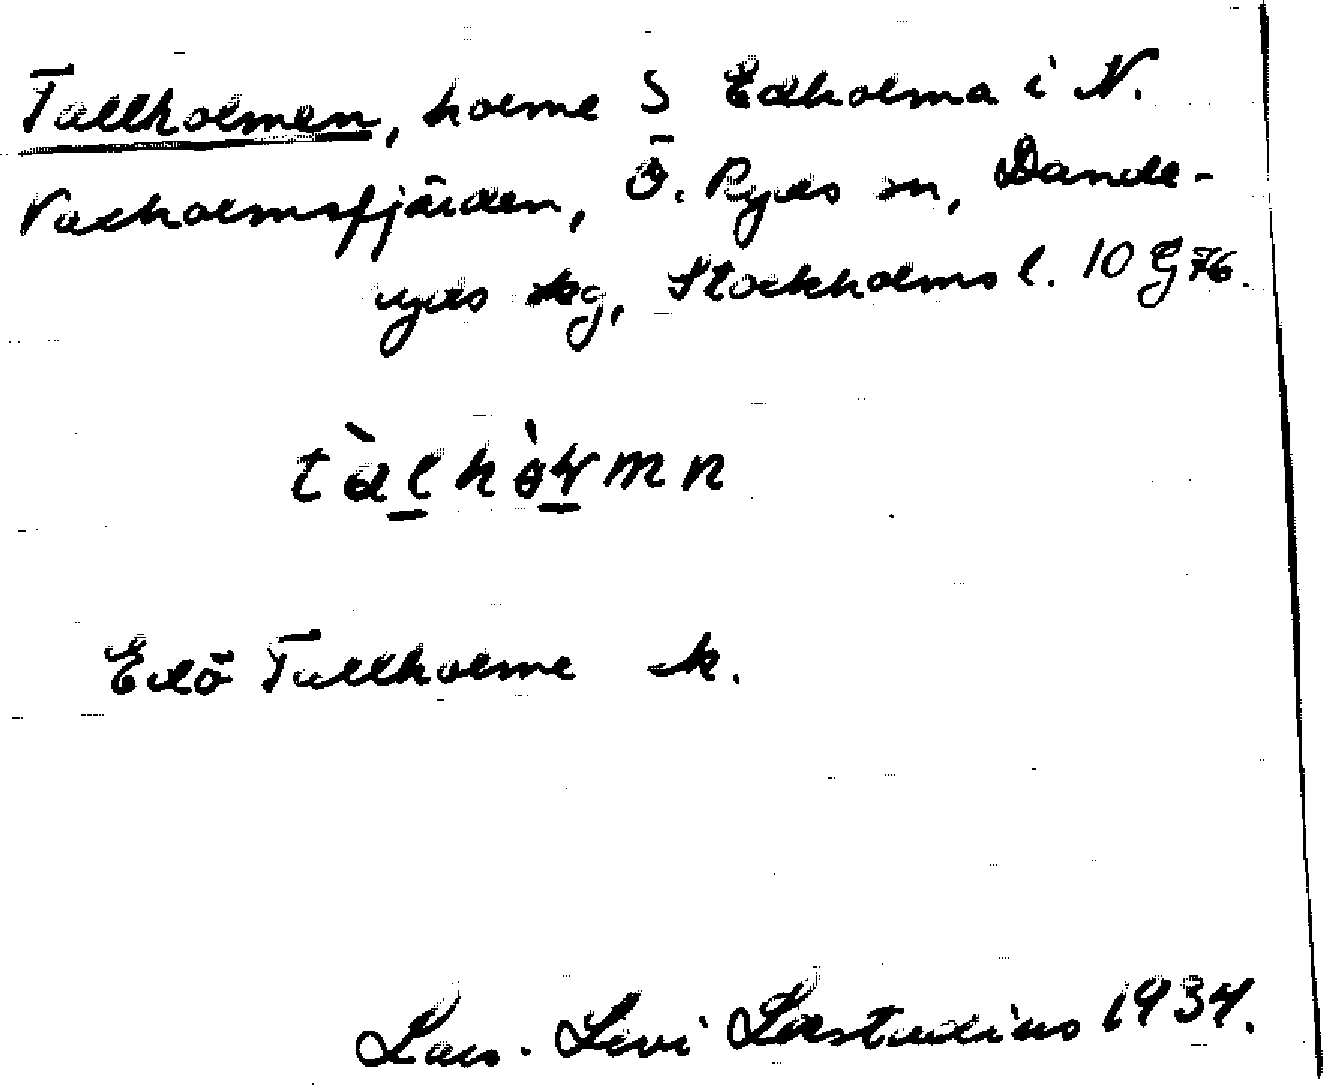 Tallholmen, holme S Edholma i N.
Vaxholmsfjärden, Ö. Ryds sn, Dande-
ryds skg, Stockholms l. 10 G 76.
tàlhòɫmn
Edö Tallholme k.
Lars-Levi Læstadius 1934.